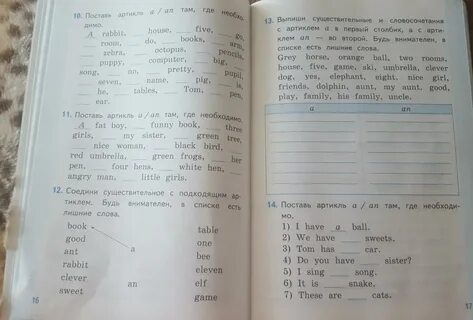 10. Поставь артикль a / an там, где необхо-
димо.
A rabbit, ___ house, ___ five, ___ go,
___ room, ___ do, ___ books, ___ arm,
___ zebra, ___ octopus, ___ pencils,
___ puppy, ___ computer, ___ big, ___
song, ___ on, ___ pretty, ___ pupil,
___ seven, ___ name, ___ pig, ___ is,
___ he, ___ tables, ___ Tom, ___ pen,
___ ear.
11. Поставь артикль a / an там, где необходимо.
A fat boy, ___ funny book, ___ three
girls, ___ my sister, ___ green tree,
___ nice woman, ___ black bird, ___
red umbrella, ___ green frogs, ___ her
pen, ___ four hens, ___ white hen, ___
angry man, ___ little girls.
12. Соедини существительное с подходящим ар-
тиклем. Будь внимателен, в списке есть
лишние слова.
book table
good a one
ant bee
rabbit eleven
clever an elf
sweet game
16
13. Выпиши существительные и словосочетания
с артиклем a в первый столбик, а с арти-
клем an — во второй. Будь внимателен, в
списке есть лишние слова.
Grey horse, orange ball, two rooms,
house, five, game, ski, umbrella, clever
dog, yes, elephant, eight, nice girl,
friends, dolphin, aunt, my aunt, good,
play, family, his family, uncle.
a an
14. Поставь артикль a / an там, где необходи-
мо.
1) I have a ball.
2) We have ___ sweets.
3) Tom has ___ car.
4) Do you have ___ sister?
5) I sing ___ song.
6) It is ___ snake.
7) These are ___ cats.
17